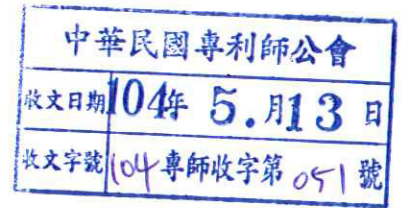 中華民國專利師公會
收文日期 104年 5.月13日
收文字號 104專師收字第051號